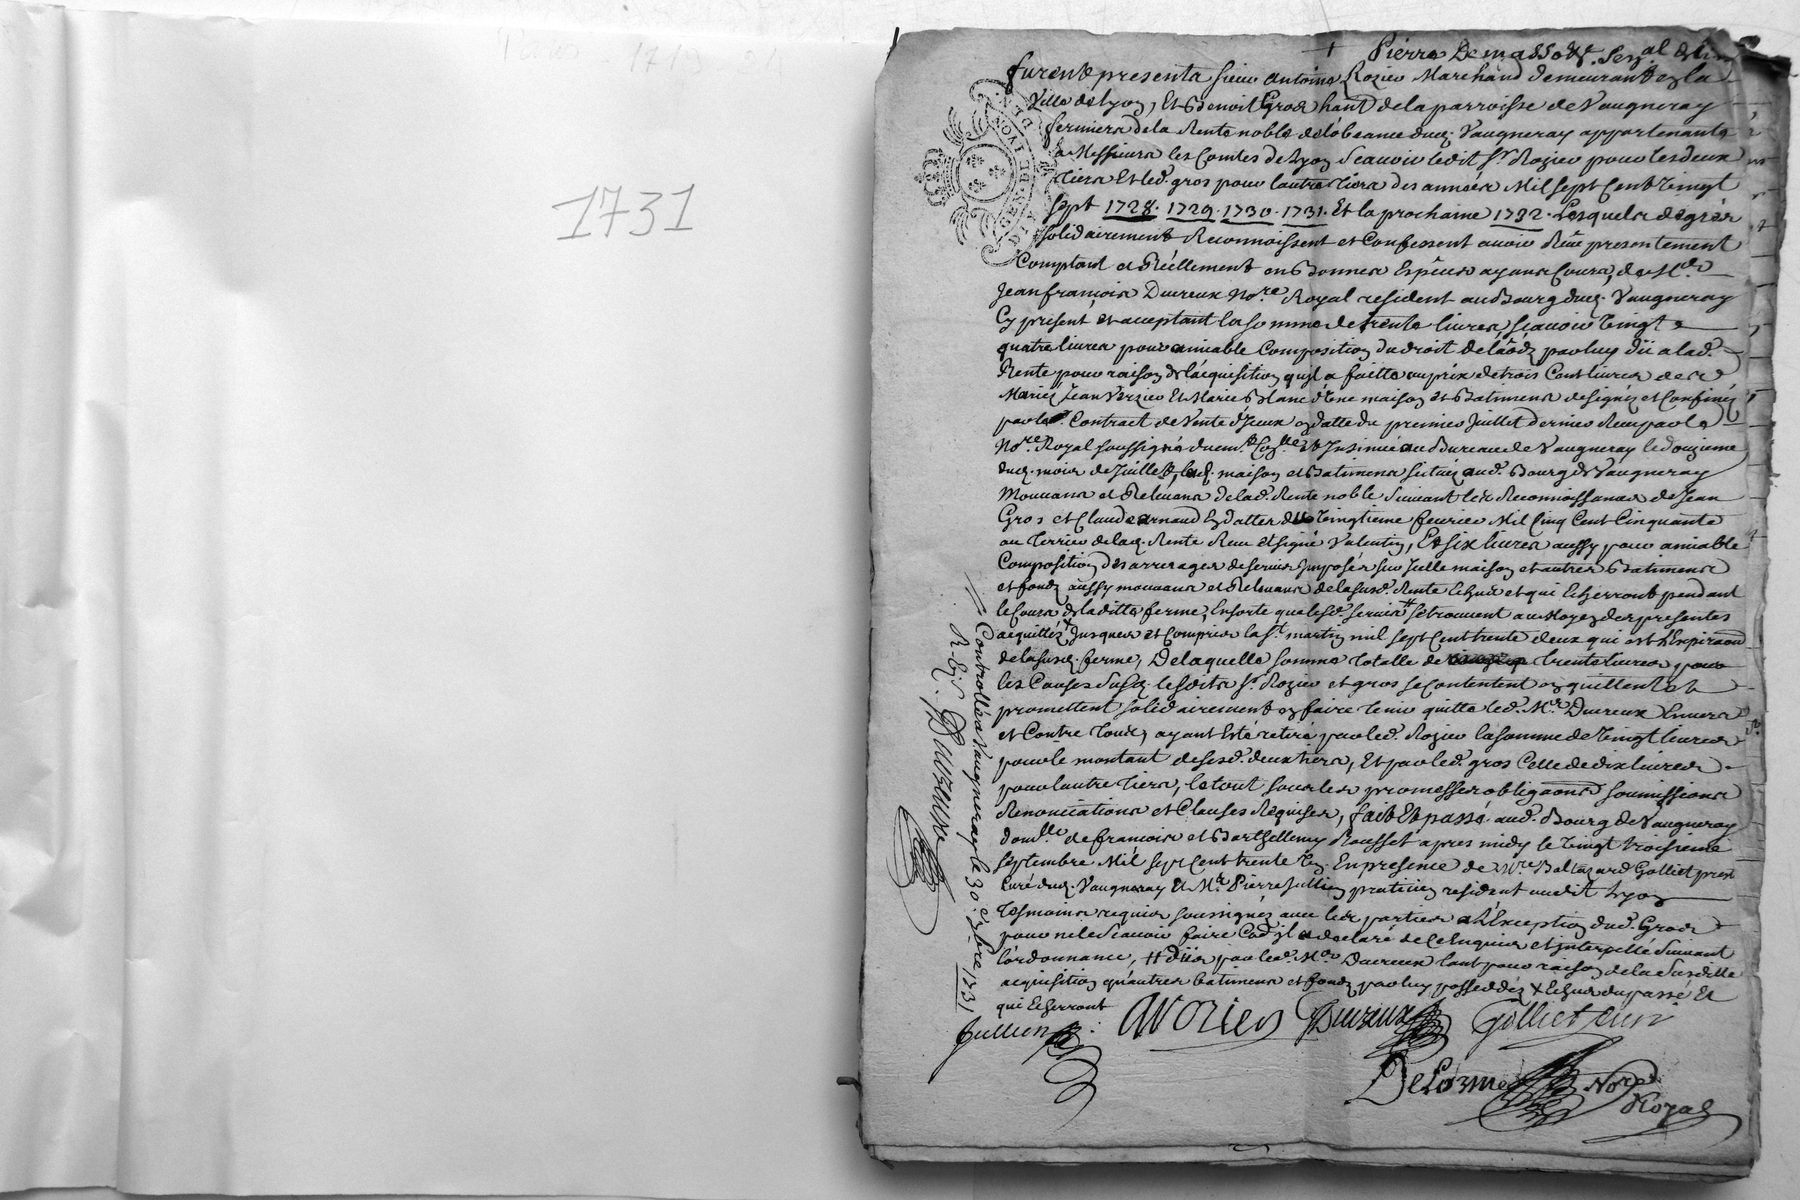 1731
Pierre Demasso
furent presents sieur Antoine Rozier Marchand demeurant en la
Ville de Lyon, Et Benoit Gros hant de la parroisse de Vaugneray
fermiers de la Rente noble de l'obeance dud. Vaugneray appartenante
a Messieurs les Comtes de Lyon scauoir ledit Sr. Rozier pour les deux
tiers Et led. gros pour lautre tiers des années Mil sept Cent vingt
sept 1728. 1729. 1730. 1731. Et la prochaine 1732. Lesquels de gré
solidairement Reconnoissent et Confessent auoir Reçu presentement
Comptant et Réellement en Bonnes Espèces ayans Cours, de Me.
Jean françois Ducreux Nore. Royal resident au Bourg dud. Vaugneray
Cy présent et acceptant la somme de trente liures, scauoir vingt
quatre liures pour amiable Composition du droit de laods par luy dü a lad.
Rente pour raison de l'acquisition qu'il a faitte au prix de trois Cent liures de
Mariez Jean Verzieu Et Marie Blanc d'Une maison et Batimens designés et Confinés
par le Contract de Vente d'Iceux en datte du premier Juillet dernier Reçu par le
Nore. Royal soussigné duem. Coll. et Insinué au Bureau de Vaugneray le douzieme
dud. mois de Juillet, lad. maison et Batimens situés aud. Bourg de Vaugneray
Mouuans et Releuans de lad. Rente noble suiuant les Reconnoissances de Jean
Gros et Claude arnaud En dattes du vingtieme feurier Mil Cinq Cent Cinquante
au Terrier de lad. Rente Reçu et signé Valentin, Et six liures aussy pour amiable
Composition des arrerages de seruis Imposés sur Jcelle maison et autres Batimens
et fonds aussy mouuans et Releuans de la susd. Rente Echus et qui Echerront pendant
le Cours de laditte ferme, En sorte que lesd. seruis # se trouuent au moyen des presentes
acquittés X Jusques et Compris la St. martin mil sept Cent trente deux qui est l'Expiraon
de la susd. ferme, De laquelle somme totalle de trente liures pour
les Causes susd. lesdits Sr. Rozier et gros se Contentent en quittent et
promettent solidairement en faire tenir quitte led. Mr. Ducreux Enuers
et Contre tous, ayant Esté retiré par led. Rozier la somme de vingt liures
pour le montant de sesd. deux tiers, Et par led. gros Celle de dix liures
pour lautre tiers, le tout sous les promesses obligaons soumissions
Renonciations et Clauses Requises, fait Et passé aud. Bourg de Vaugneray
domlle. de francois et Barthellemy Rousset apres midy le vingt troisieme
Septembre Mil sept Cent trente Un. En presence de Mre. Baltazard Golliet pretre
Curé dud. Vaugneray Et Mr. Pierre Jullien praticien resident audit Lyon
tesmoins requis soussignés auec les parties a L'Exception dud. Gros
pour ne le scauoir faire Co. Jl a declaré de Ce Enquis et interpellé suiuant
l'ordonnance, # düs par led. Mr. Ducreux tant pour raison de la susditte
acquisition qu'autres batimens et fonds par luy posseddés X Echus du passé Et
qui Echerront
Jullien A Rozier Ducreux Golliet curé
Delorme Nore.
Royal
Controllé a Vaugneray le 30e. 7bre 1731
R. Ducreux